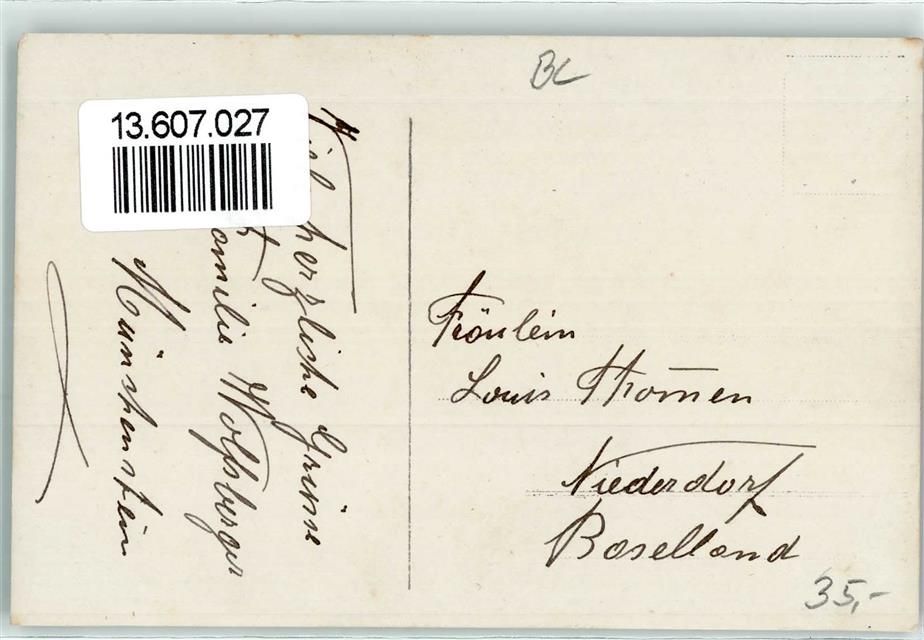 BL
13.607.027
Viel herzliche Grüsse
Familie Wolfsberger
Münchenstein
Fräulein
Louis Thommen
Niederdorf
Baselland
35,-